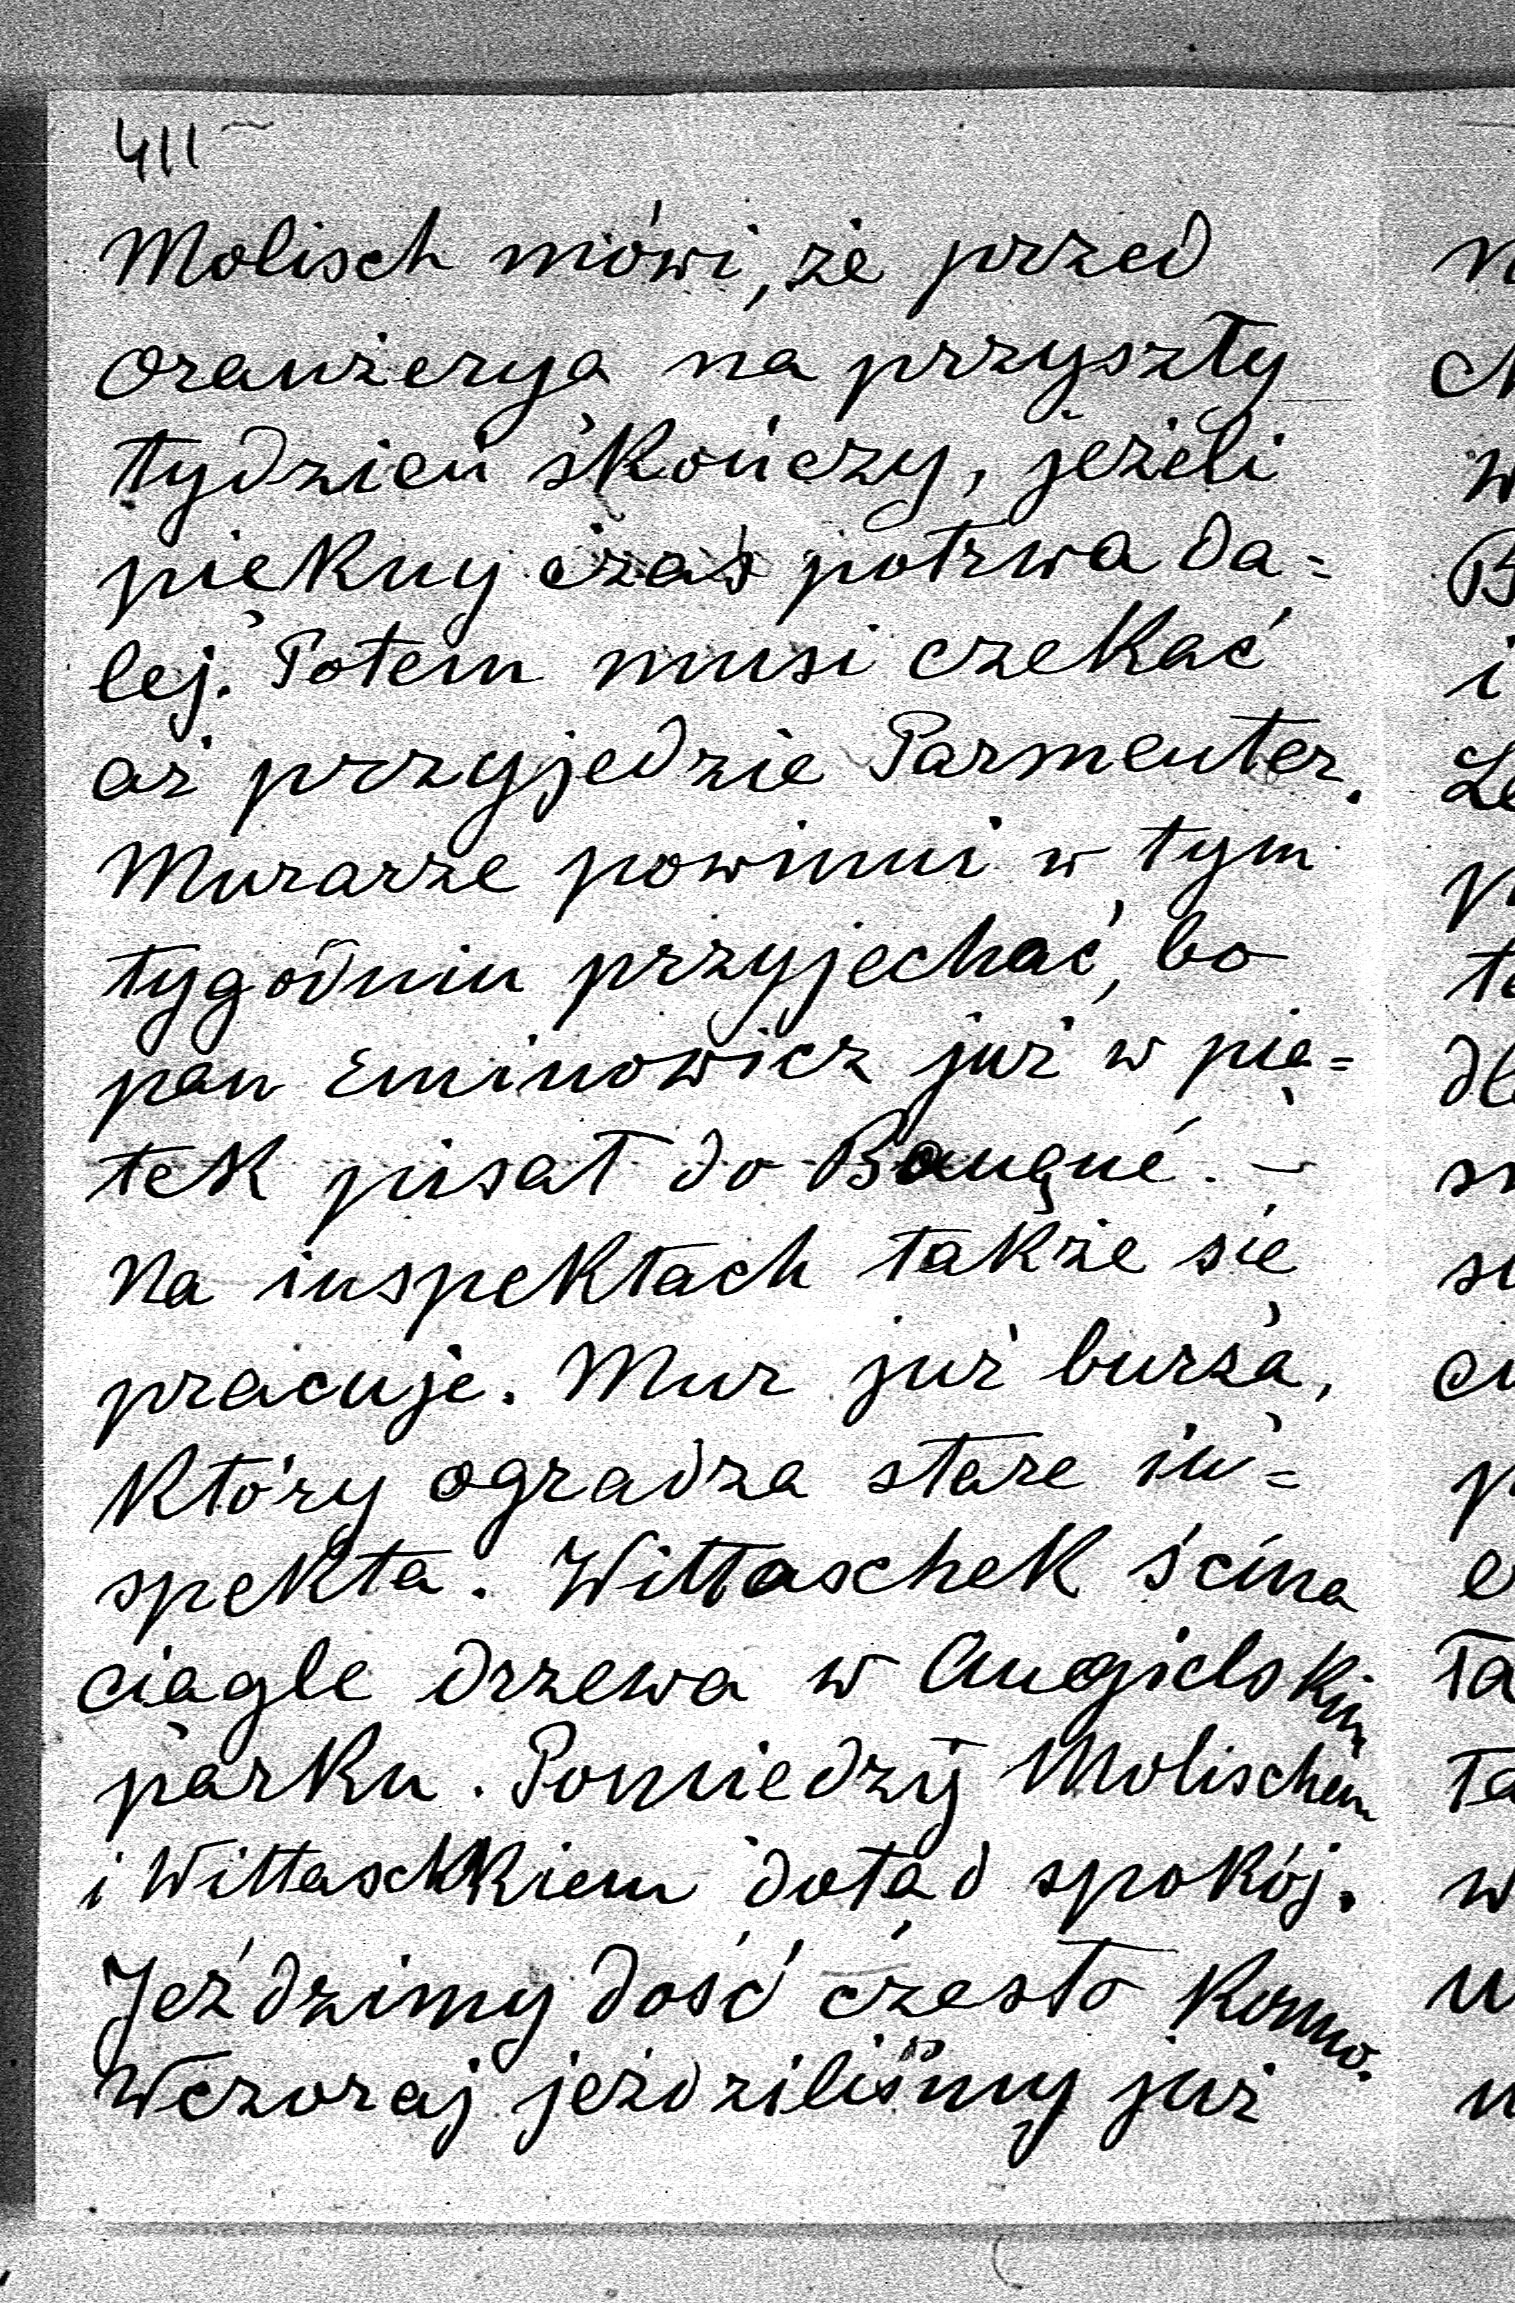 411
Molisch mówi, że przed
oranżeryą na przyszły
tydzień skończy, jeżeli
piękny czas potrwa da=
lej. Potem musi czekać
aż przyjedzie Parmenter.
Murarze powinni w tym
tygodniu przyjechać, bo
pan Eminowicz już w pią=
tek pisał do Bauqué. –
Na inspektach także się
pracuje. Mur już burzą,
który ogradza stare in=
spekta. Wittaschek ścina
ciągle drzewa w Angielskim
parku. Pomiędzy Molischem
i Wittaschkiem dotąd spokój.
Jeździmy dość często konno.
Wczoraj jeździliśmy już